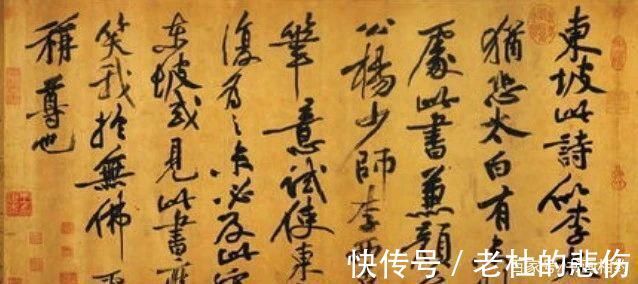 東坡此詩似李
猶恐太白有未
處此書兼顏
公楊少師李西
筆意試使東
復為之未必及此
東坡或見此書應
笑我於無佛
稱尊也
快传号 / 老杜的悲伤